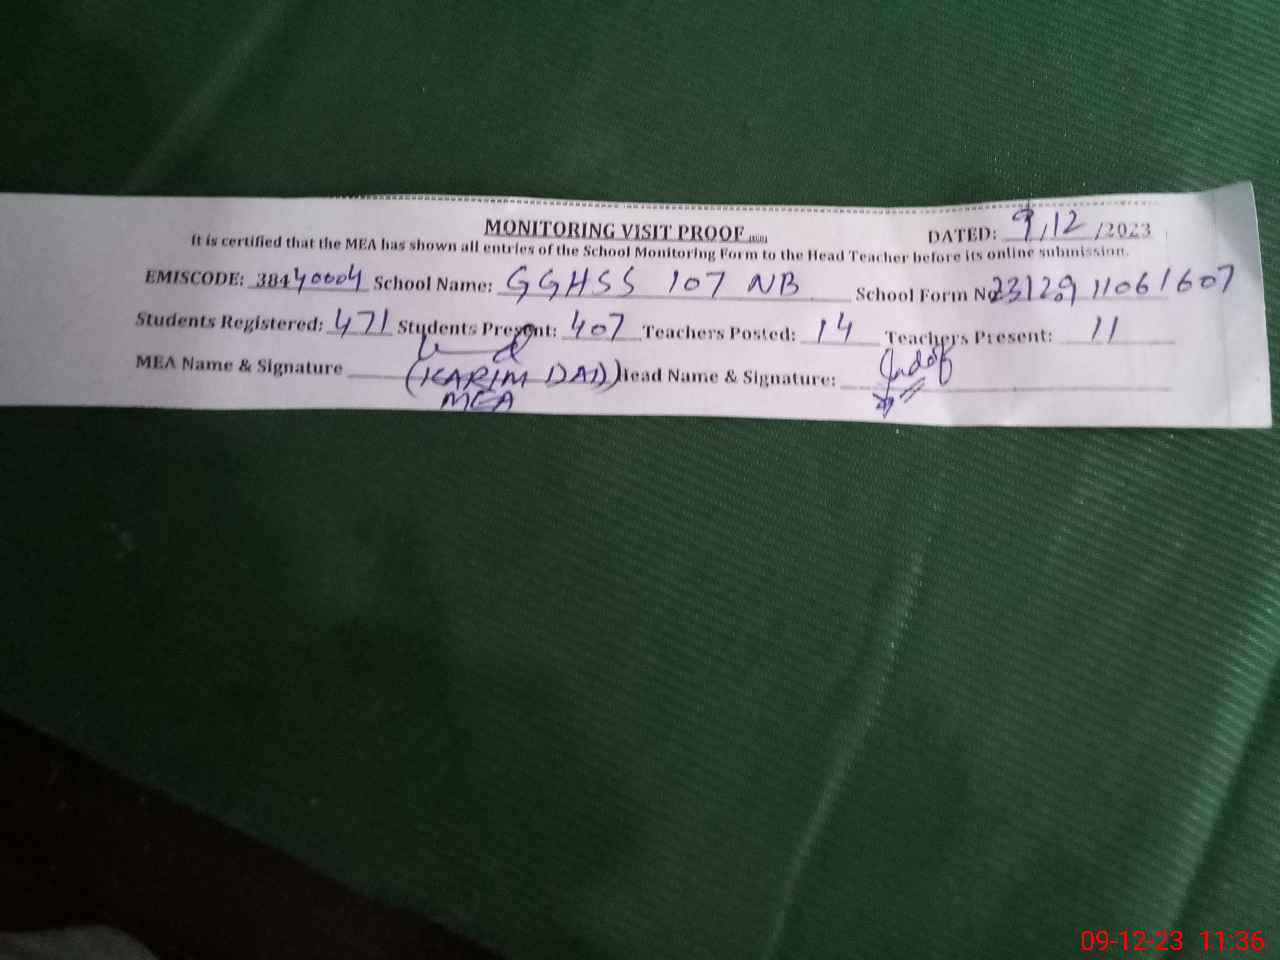 MONITORING VISIT PROOF
DATED: 9,12 /2023
It is certified that the MEA has shown all entries of the School Monitoring Form to the Head Teacher before its online submission.
EMISCODE: 38440004 School Name: GGHSS 107 NB School Form No 23129 11061607
Students Registered: 471 Students Present: 407 Teachers Posted: 14 Teachers Present: 11
MEA Name & Signature (KARIM DAD) Head Name & Signature:
MEA
09-12-23 11:36